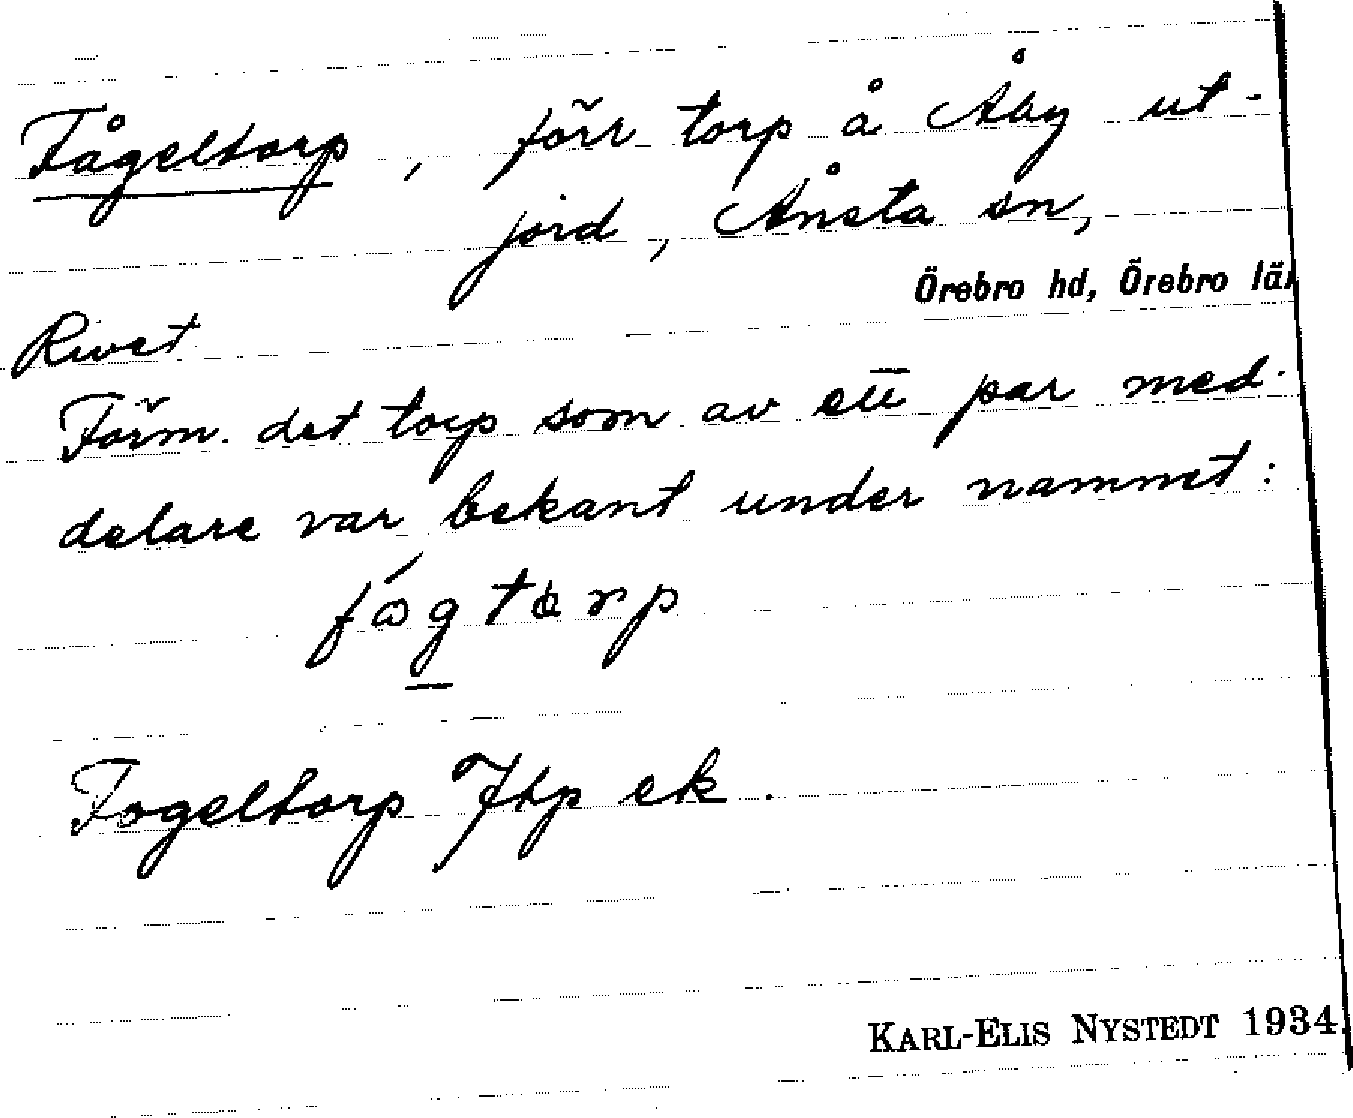 Fågeltorp, förr torp å Åby ut-
jord, Ånsta sn,
Örebro hd, Örebro län
Rivet
Förm. det torp som av ett par med-
delare var bekant under namnet:
fógtorp
Fogeltorp Jbp ek.
KARL-ELIS NYSTEDT 1934.